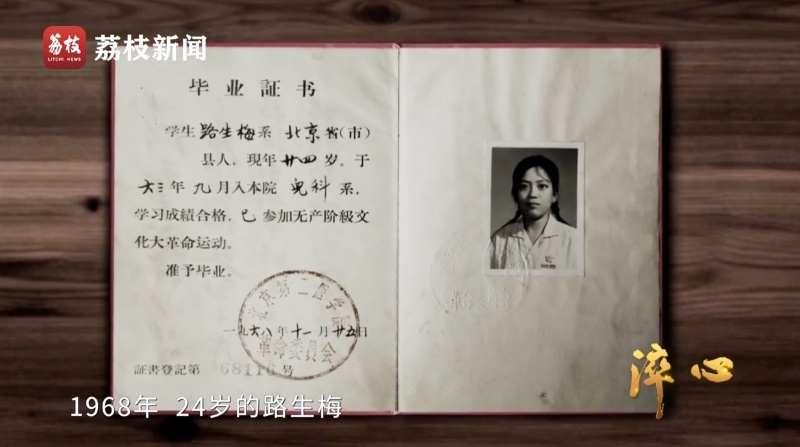 荔枝
LITCHI NEWS
荔枝新闻
毕业証书
学生路生梅系北京省(市)
县人，现年廿四岁。于
六三年九月入本院兒科系，
学习成績合格，已参加无产阶級文
化大革命运动。
准予毕业。
北京第二医学院
革命委员会
一九六八年十一月廿五日
証書登記第68116号
革命委员会
淬心
1968年 24岁的路生梅